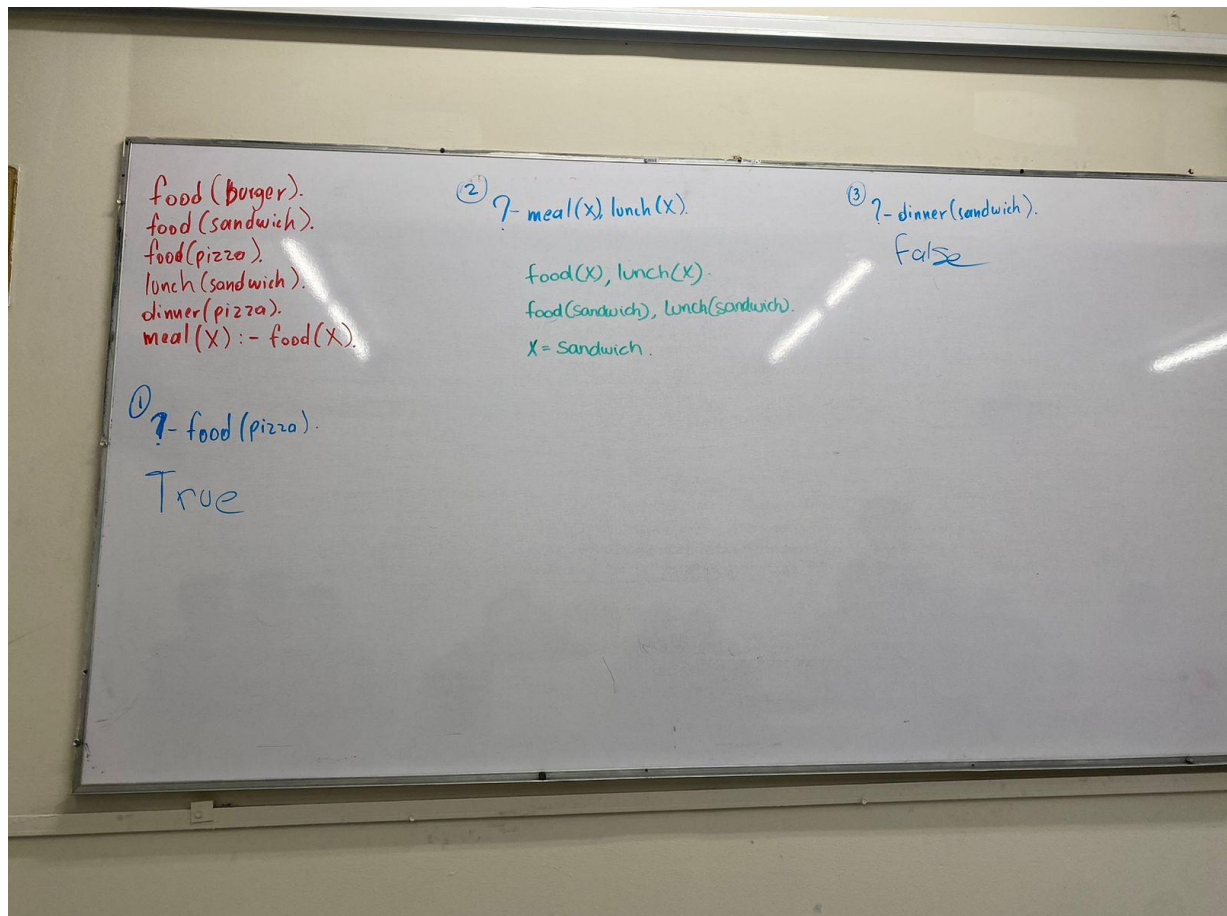 food(burger).
food(sandwich).
food(pizza).
lunch(sandwich).
dinner(pizza).
meal(X) :- food(X).
①
?- food(pizza).
True
②
?- meal(X), lunch(X).
food(X), lunch(X).
food(sandwich), lunch(sandwich).
X = Sandwich.
③
?- dinner(sandwich).
False